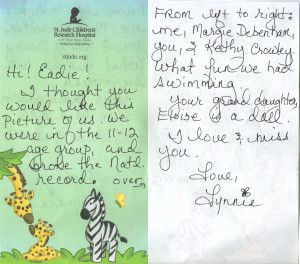 St. Jude Children's
Research Hospital
stjude.org
Hi! Eadie!
I thought you
would like this
Picture of us. We
were in the 11-12
age group, and
broke the Natl.
record. over
From left to right:
me, Margie Debenham,
you, & Kathy Crowley
What fun we had
swimming
Your grand daughter,
Eloise is a doll.
I love & miss
you.
Love,
Lynnie